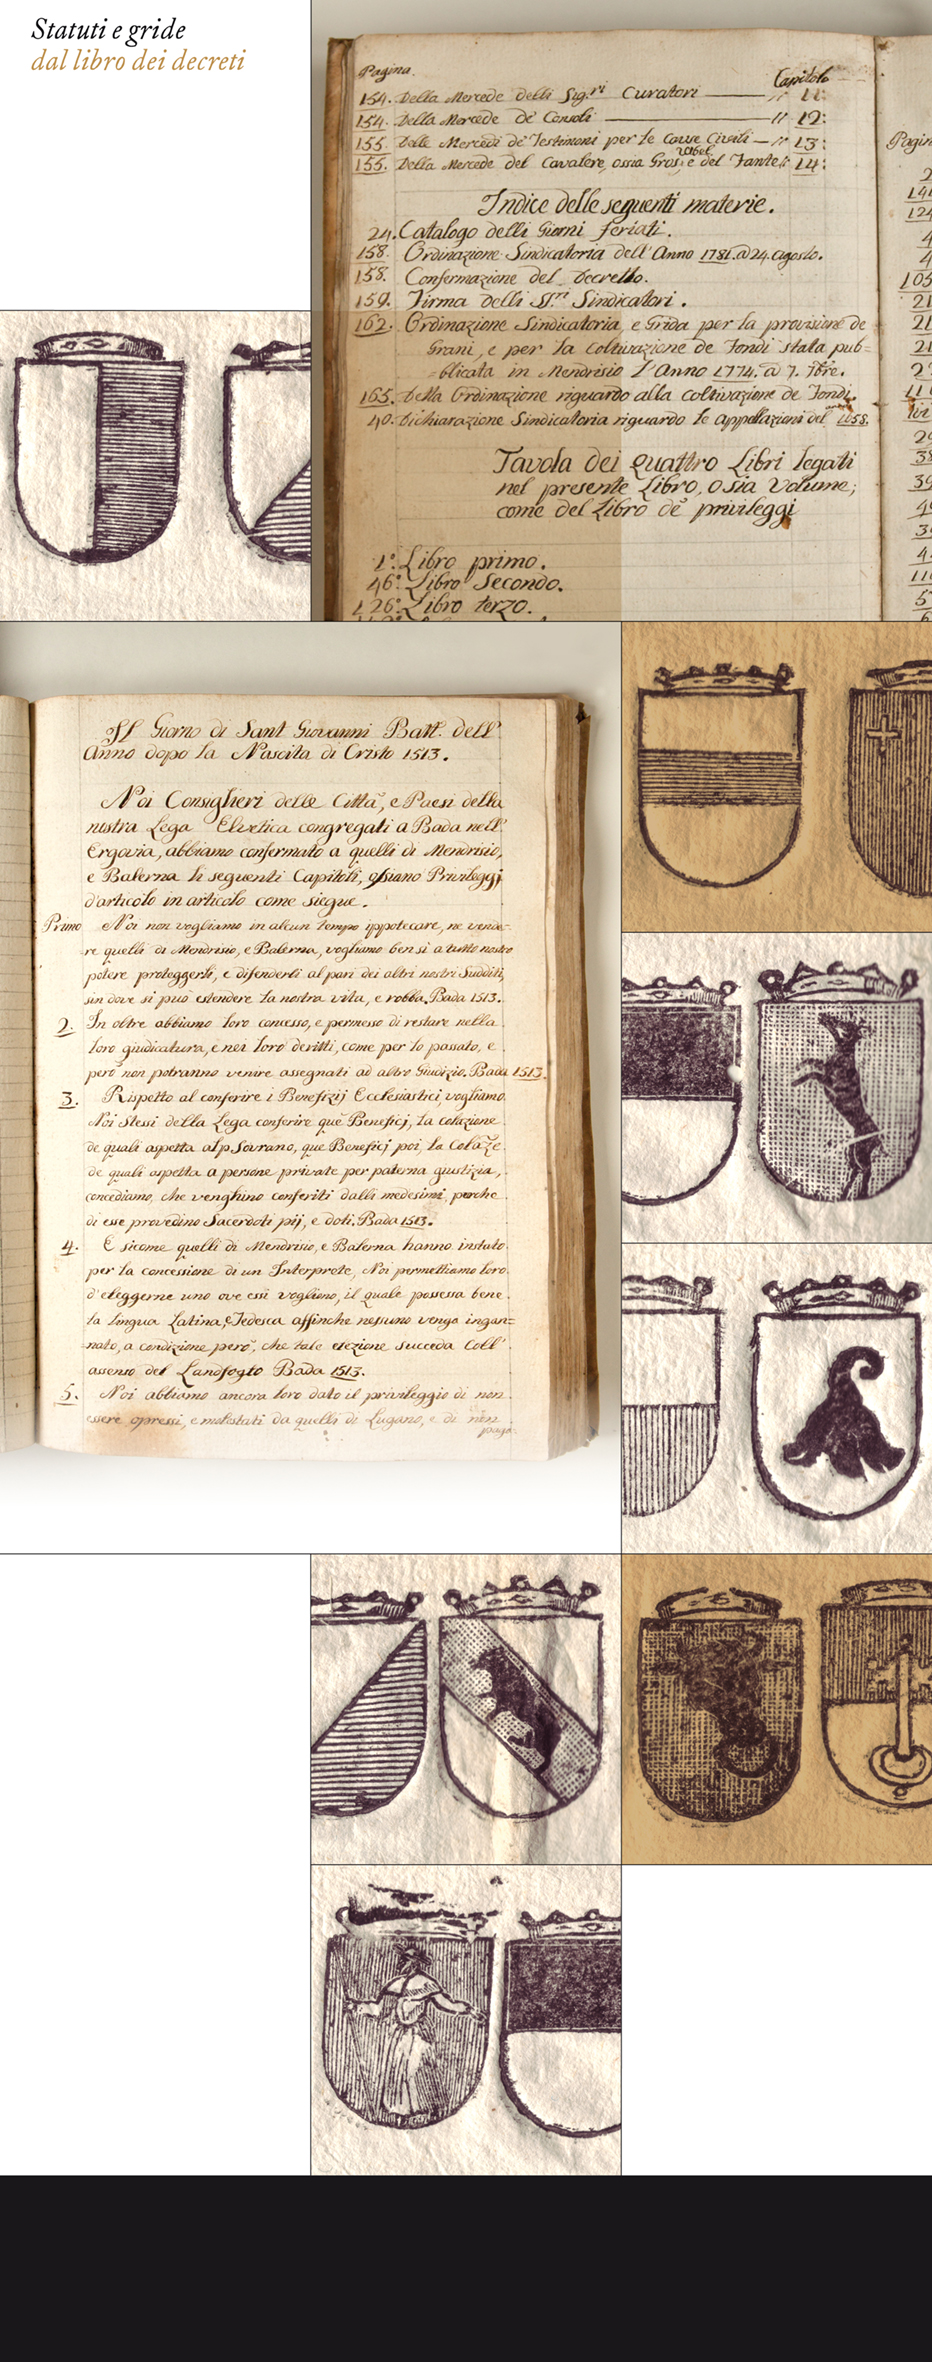 Statuti e gride
dal libro dei decreti
Pagina. Capitolo
154. Della Mercede delli Sig.ri Curatori — " 11:
154. Della Mercede de' Consoli — " 12:
155. Delle Mercedi de' Testimoni per le Cause Civili — " 13:
155. Della Mercede del Cavalere, ossia e del Fante " 14:
Indice delle seguenti materie.
24. Catalogo delli Giorni feriati.
158. Ordinazione Sindicatoria dell'Anno 1781. a 24. Agosto.
158. Confermazione del Decretto.
159. Firma delli SS.ri Sindicatori.
162. Ordinazione Sindicatoria, e Grida per la provisione de
Grani, e per la coltivazione de Fondi stata pub=
=blicata in Mendrisio l'Anno 1774. a 7. 7bre.
165. Della Ordinazione riguardo alla coltivazione de Fondi.
40. Dichiarazione Sindicatoria riguardo le Appellazioni del 1658.
Tavola dei quattro Libri legati
nel presente Libro, o sia Volume;
come del Libro de' privileggi
1°: Libro primo.
46°: Libro Secondo.
126°: Libro terzo.
Il Giorno di Sant Giovanni Batt. dell'
Anno dopo la Nascita di Cristo 1513.
Noi Consiglieri delle Città, e Paesi della
nostra Lega Elvetica congregati a Bada nell'
Ergovia, abbiamo confermato a quelli di Mendrisio,
e Balerna li seguenti Capitoli, ossiano Privileggj
d'articolo in articolo come siegue.
Primo Noi non vogliamo in alcun tempo ippotecare, ne vende=
=re quelli di Mendrisio, e Balerna, vogliamo ben sì a tutto nostro
potere proteggerli, e difenderli al pari dei altri nostri Sudditi,
sin dove si può estendere la nostra vita, e robba. Bada 1513.
2. In oltre abbiamo loro concesso, e permesso di restare nella
loro giudicatura, e nei loro deritti, come per lo passato, e
però non potranno venire assegnati ad altro Giudizio. Bada 1513.
3. Rispetto al conferire i Benefizij Ecclesiastici, vogliamo
Noi Stessi della Lega conferire que' Beneficj, la colazione
de quali aspetta al p. Sovrano, que Beneficj poi, la Colaz.e
de quali aspetta a persone private per paterna giustizia,
concediamo, che venghino conferiti dalli medesimi, perche
di esse provedino Sacerdoti pij, e doti. Bada 1513.
4. E sicome quelli di Mendrisio, e Balerna hanno instato
per la concessione di un Interprete, Noi permettiamo loro
d'eleggerne uno ove essi vogliono, il quale possessa bene
la Lingua Latina, e Tedesca affinche nessuno venga ingan=
=nato, a condizione però, che tale elezione succeda coll'
assenso del Landfogto Bada 1513.
5. Noi abbiamo ancora loro dato il privileggio di non
essere opressi, e molestati da quelli di Lugano, e di non
paga=